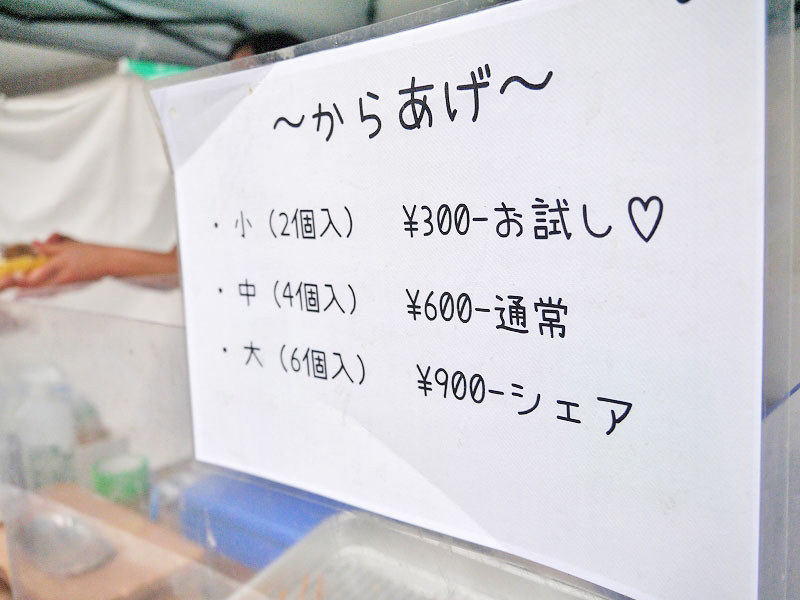 ～からあげ～
・小（2個入） ¥300-お試し♡
・中（4個入） ¥600-通常
・大（6個入） ¥900-シェア